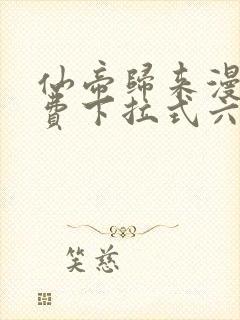 仙帝歸来漫
費下拉式六
笑慈